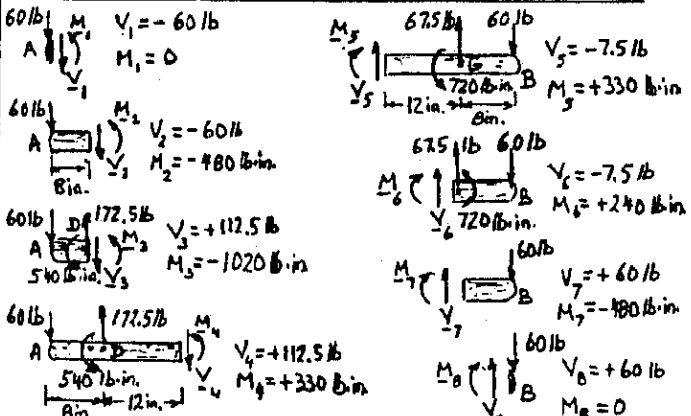 60 lb
M₁
A
V₁
V₁ = - 60 lb
M₁ = 0
60 lb
M₂
A
V₂ = -60 lb
M₂ = -480 lb·in.
8 in.
60 lb
172.5 lb
D
A
M₃
V₃
540 lb·in.
V₃ = +112.5 lb
M₃ = -1020 lb·in
60 lb
172.5 lb
M₄
A
V₄
540 lb·in.
8 in.
12 in.
V₄ = +112.5 lb
M₄ = +330 lb·in.
67.5 lb
60 lb
M₅
V₅
G
720 lb·in.
B
12 in.
8 in.
V₅ = -7.5 lb
M₅ = +330 lb·in.
67.5 lb
60 lb
M₆
V₆
720 lb·in.
B
V₆ = -7.5 lb
M₆ = +240 lb·in.
60 lb
M₇
V₇
B
V₇ = +60 lb
M₇ = -480 lb·in.
60 lb
M₈
B
V₈ = +60 lb
M₈ = 0